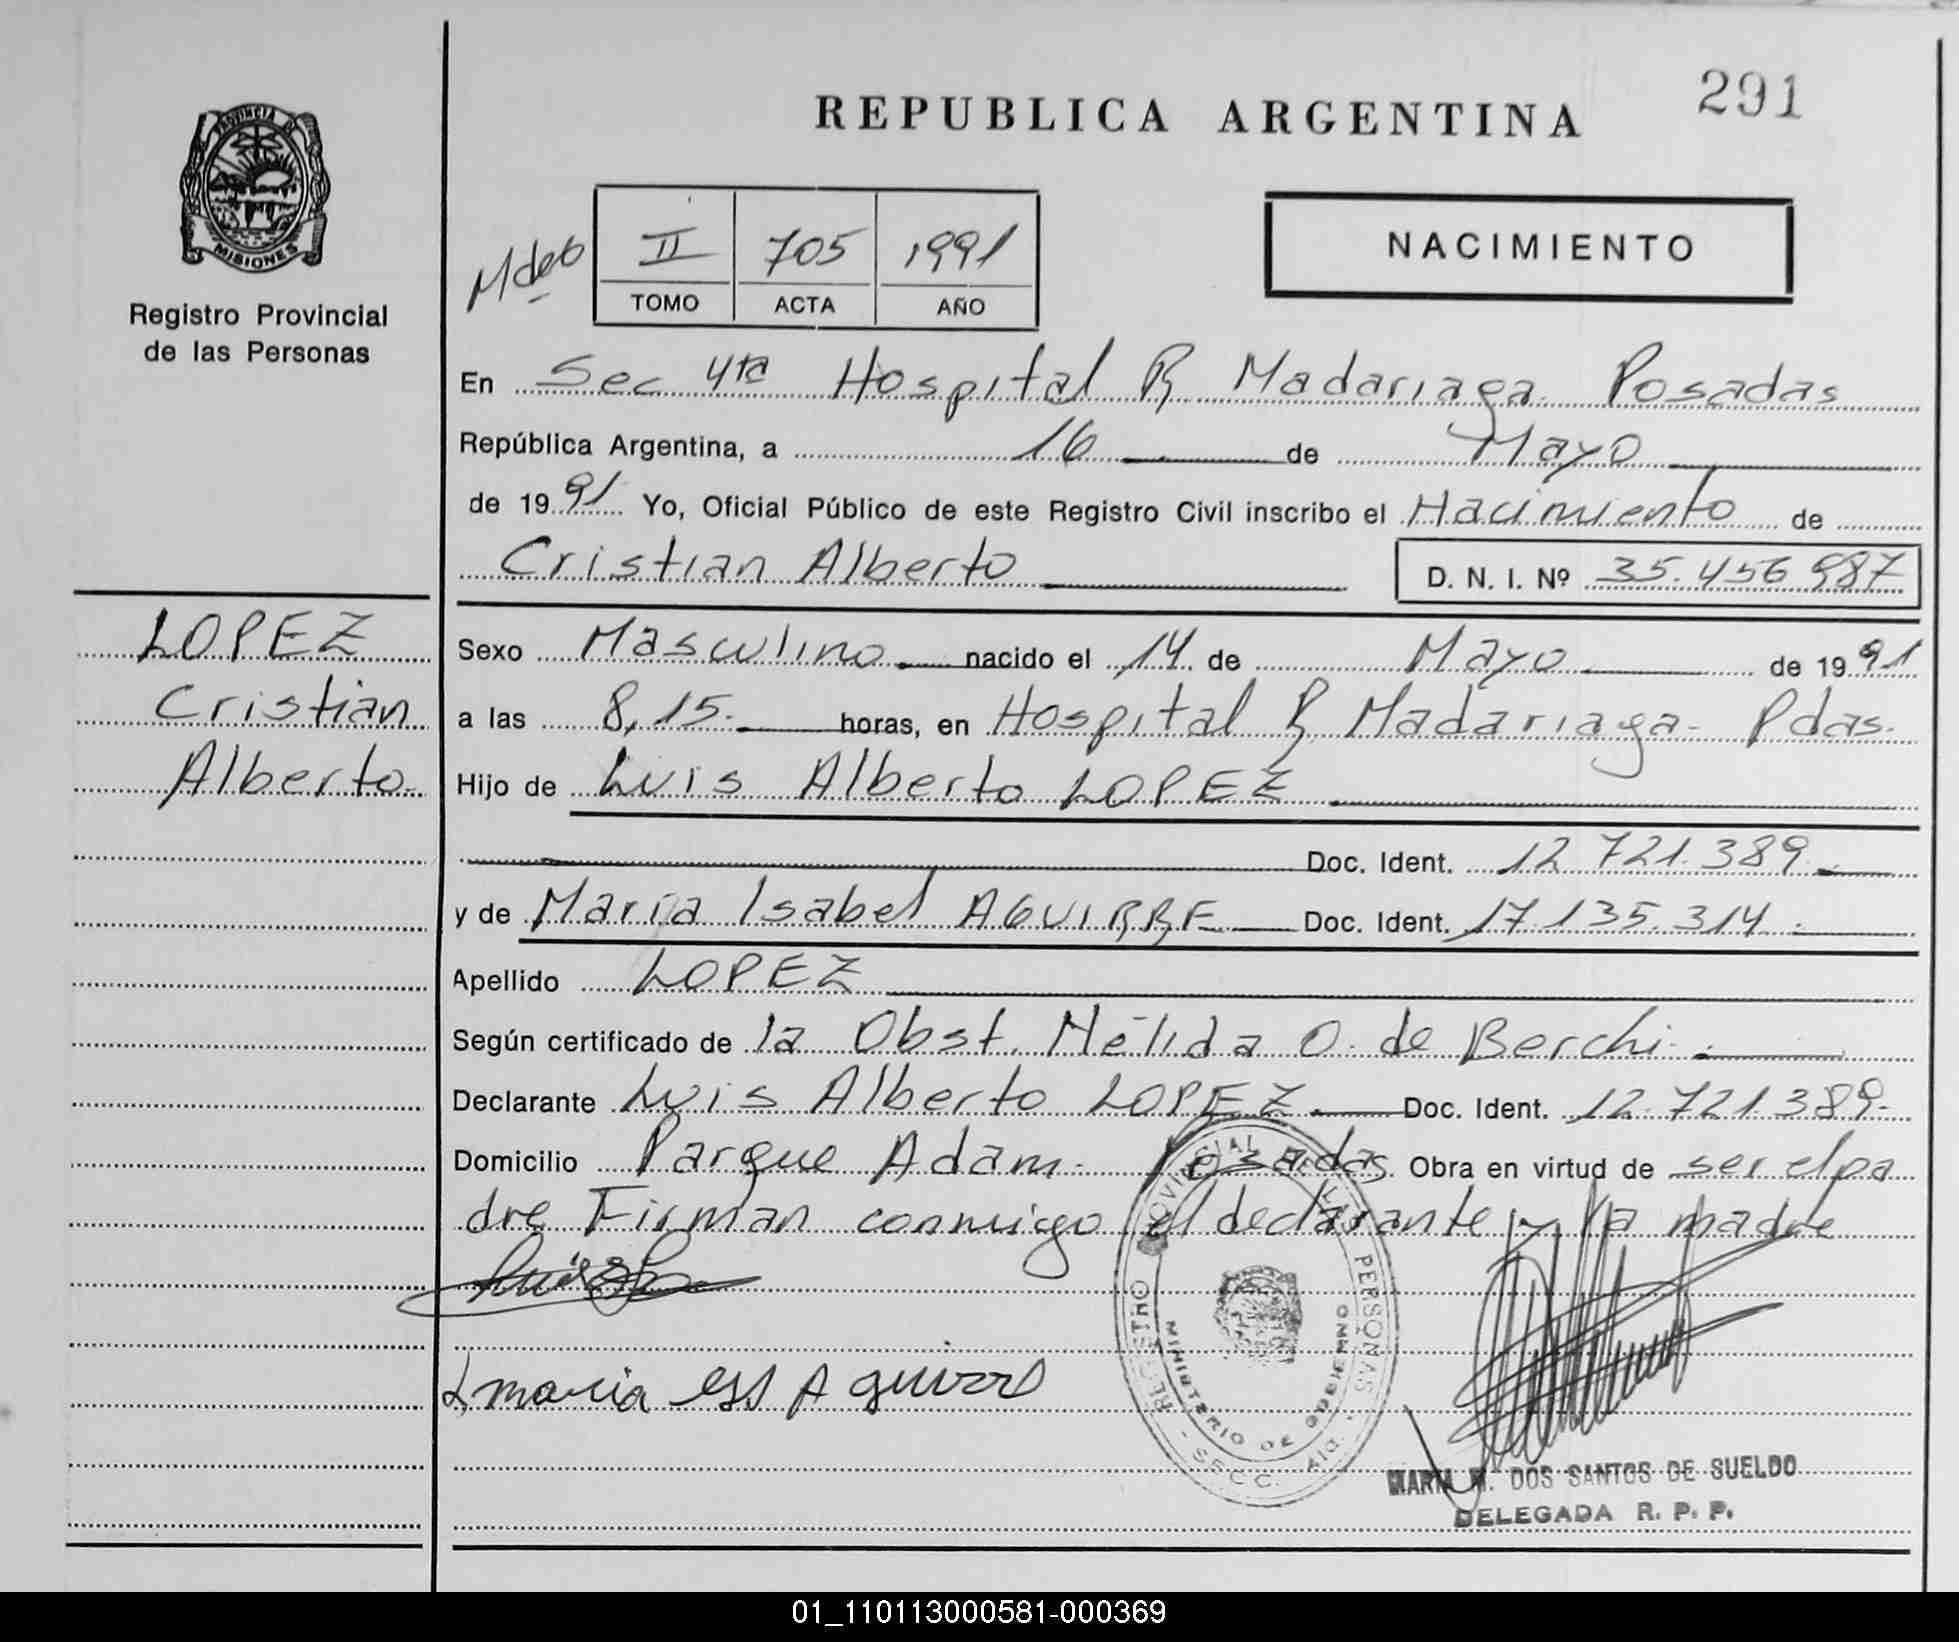 291
REPUBLICA ARGENTINA
PROVINCIA DE
MISIONES
Registro Provincial
de las Personas
NACIMIENTO
II 705 1991
TOMO ACTA AÑO
En Sec 4ta Hospital R Madariaga Posadas
República Argentina, a 16 de Mayo
de 1991 Yo, Oficial Público de este Registro Civil inscribo el Nacimiento de
Cristian Alberto D. N. I. Nº 35.456 987
LOPEZ
Cristian
Alberto.
Sexo Masculino nacido el 14 de Mayo de 1991
a las 8,15. horas, en Hospital R Madariaga- Pdas.
Hijo de Luis Alberto LOPEZ
Doc. Ident. 12 721.389.
y de María Isabel AGUIRRE Doc. Ident. 17.135.314.
Apellido LOPEZ
Según certificado de la Obst. Nélida O. de Berchi.
Declarante Luis Alberto LOPEZ Doc. Ident. 12.721.389.
Domicilio Parque Adam. Posadas Obra en virtud de ser el pa
dre Firman conmigo el declarante y la madre
maria Aguirre
REGISTRO PROVINCIAL DE LAS PERSONAS
MINISTERIO DE GOBIERNO
SECC. 4ta.
MARIA M. DOS SANTOS DE SUELDO
DELEGADA R. P. P.
01_110113000581-000369